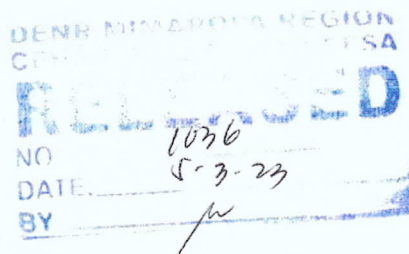 DENR MIMAROPA REGION
RELEASED
NO 1036
DATE 5-3-23
BY